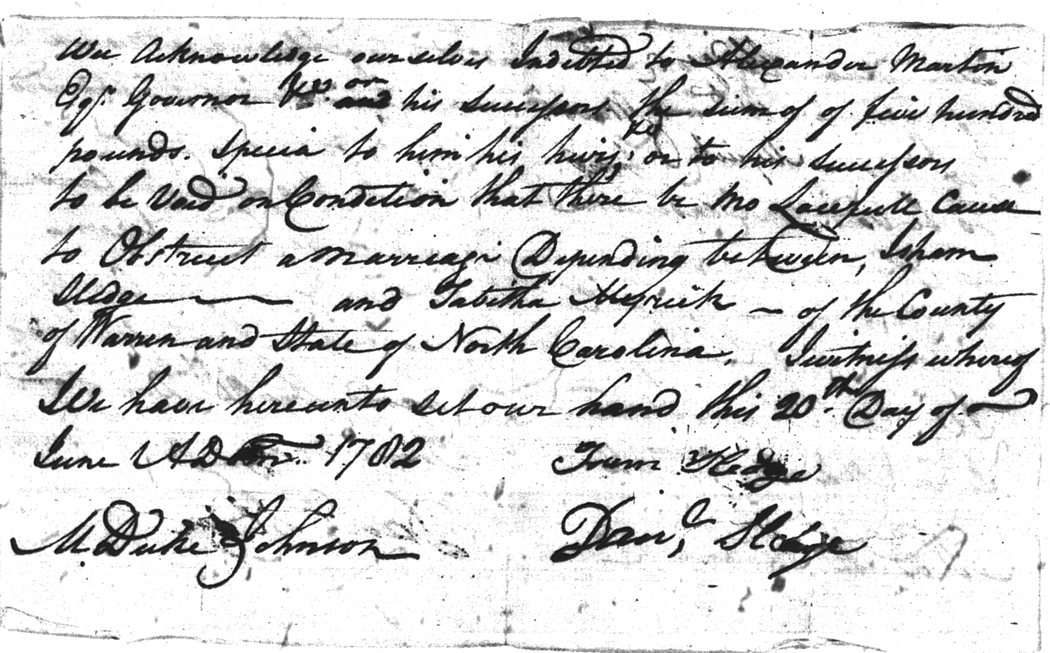 Wee Acknowledge ourselves Indebted to Alexander Martin
Esqr. Governor &c. or his Successors the sum of of five hundred
pounds. Specia to him his heirs &c or to his Successors
to be Void on Condition that there be no Lawfull Cause
to Obstruct a marreage Depending between, Isham
Sledge and Tabitha of the County
of Warren and State of North Carolina. Iwitness whereof
We have hereunto set our hand this 20th. Day of
June AD 1782
Isum Sledge
M Duke Johnson
Danl, Sledge